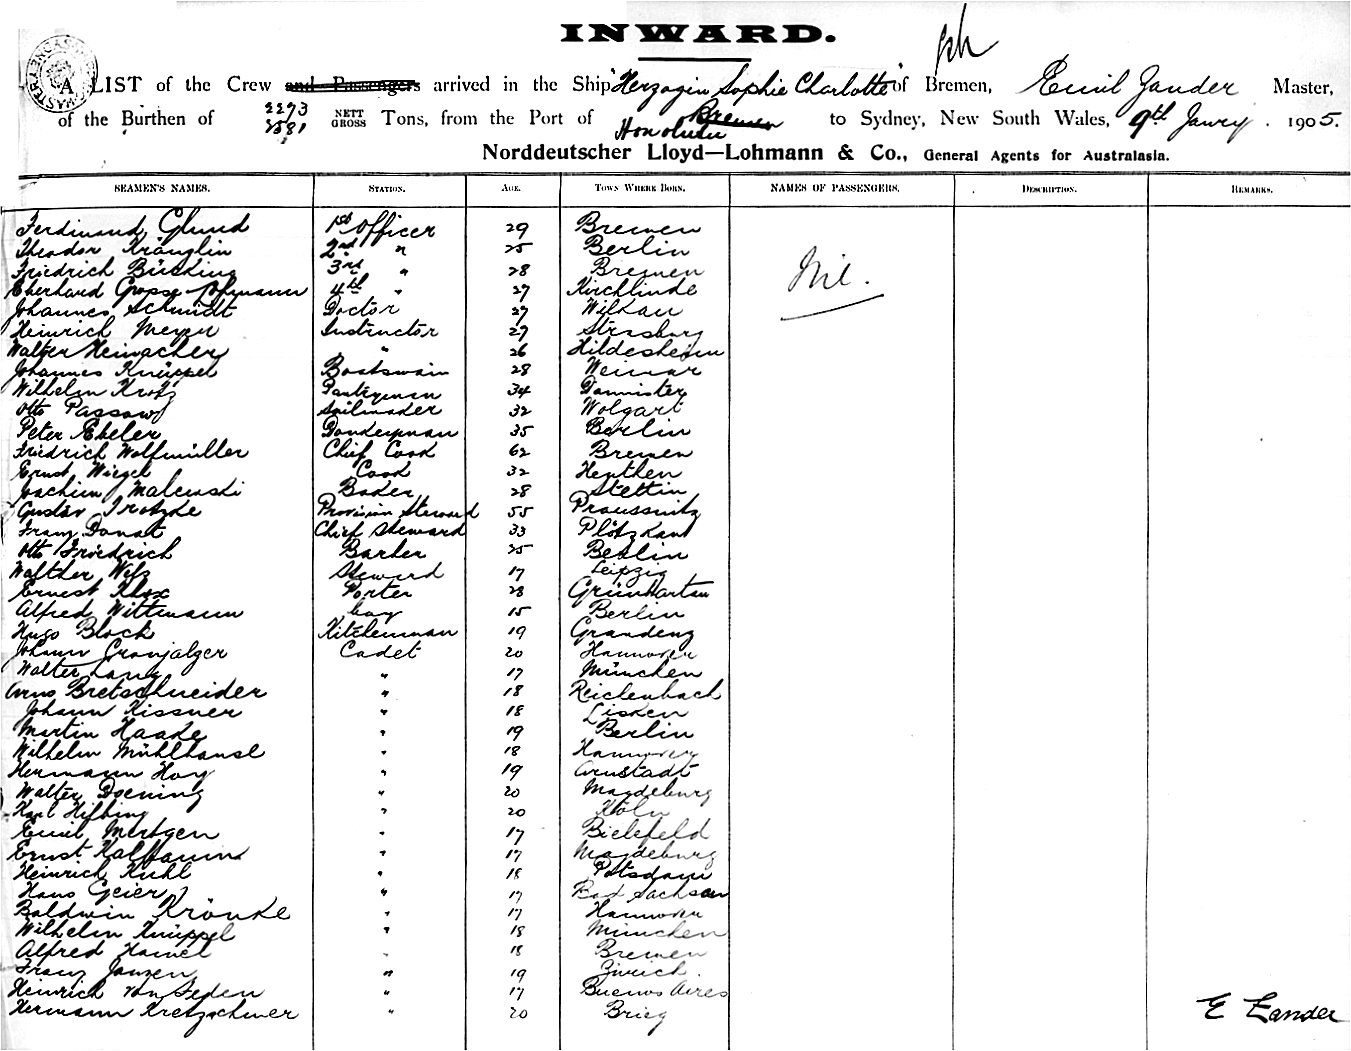 INWARD.
A LIST of the Crew and Passengers arrived in the Ship "Herzogin Sophie Charlotte" of Bremen, Emil Zander Master,
of the Burthen of 2273 2581 NETT GROSS Tons, from the Port of Bremen Honolulu to Sydney, New South Wales, 9th Janry. 1905.
Norddeutscher Lloyd—Lohmann & Co., General Agents for Australasia.
SEAMEN'S NAMES. STATION. AGE. TOWN WHERE BORN. NAMES OF PASSENGERS. DESCRIPTION. REMARKS.
Ferdinand Glund 1st Officer 29 Bremen
Theodor Kränglin 2nd " 25 Berlin
Friedrich Bücking 3rd " 28 Bremen
Eberhard Grosse 4th " 27 Kirchlinde Nil.
Johannes Schmidt Doctor 27 Wilkau
Heinrich Meyer Instructor 27 Strasburg
Walter Heimacher " 26 Hildesheim
Johannes Knüppel Boatswain 28 Weimar
Wilhelm Krotz Pantryman 34
Otto Passow Sailmaker 32 Wolgart
Peter Ebeler Donkeyman 35 Berlin
Friedrich Wolfmüller Chief Cook 62 Bremen
Ernst Wiegel Cook 32
Joachim Malewski Baker 28 Stettin
Gustav Provision Steward 55 Praussnitz
Franz Donat Chief Steward 33 Plötzkau
Otto Friedrich Barber 25 Berlin
Walther Steward 17 Leipzig
Ernest Klox Porter 28 Grünhartau
Alfred Wittmann boy 15 Berlin
Hugo Block Kitchenman 19 Graudenz
Johann Cadet 20 Hannover
Walter Lang " 17 München
Arno Bretschneider " 18 Reichenbach
Johann Kissner " 18
Martin Haake " 19 Berlin
Wilhelm Mühlhansl " 18 Hannover
Hermann Hoy " 19 Arnstadt
Walter Doening " 20 Magdeburg
Karl " 20 Köln
Emil Mertgen " 17 Bielefeld
Ernst " 17 Magdeburg
Heinrich Kuhl " 18 Potsdam
Hans Geier " 17 Bad Sachsen
Baldwin Krönke " 17 Hannover
Wilhelm Knüppel " 18 München
Alfred Hamel " 18 Bremen
Franz Janzen " 19 Zürich.
Heinrich von " 17 Buenos Aires
Hermann Kretzschmer " 20 Brieg
E Zander